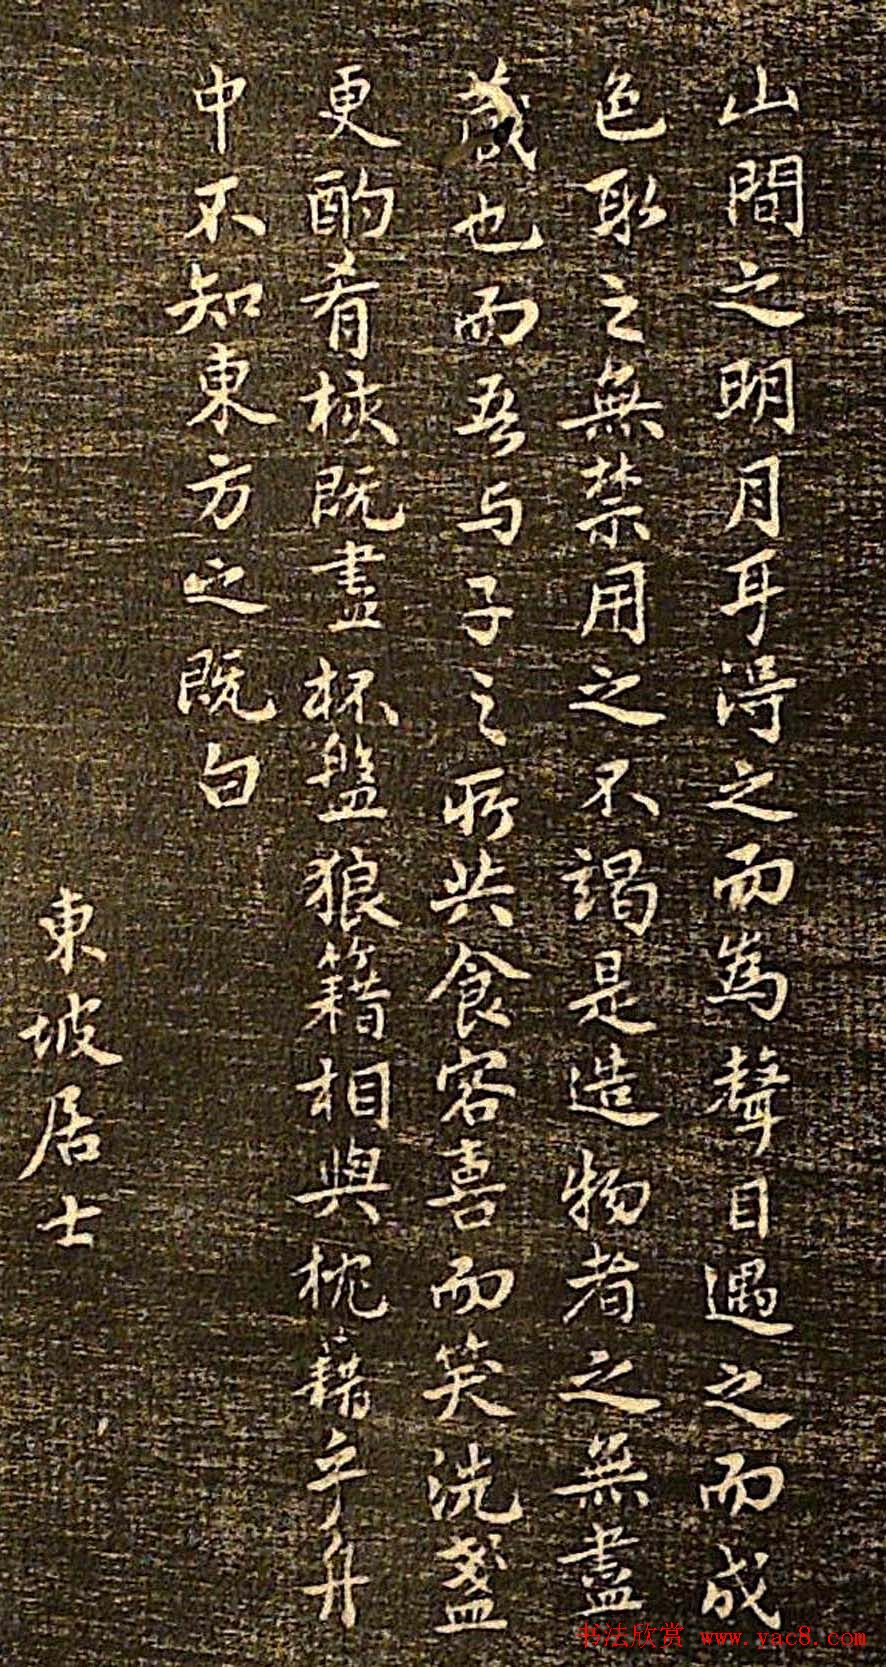 山間之明月耳得之而為聲目遇之而成
色取之無禁用之不竭是造物者之無盡
藏也而吾与子之所共食客喜而笑洗盞
更酌肴核既盡杯盤狼籍相與枕藉乎舟
中不知東方之既白
東坡居士
书法欣赏 www.yac8.com